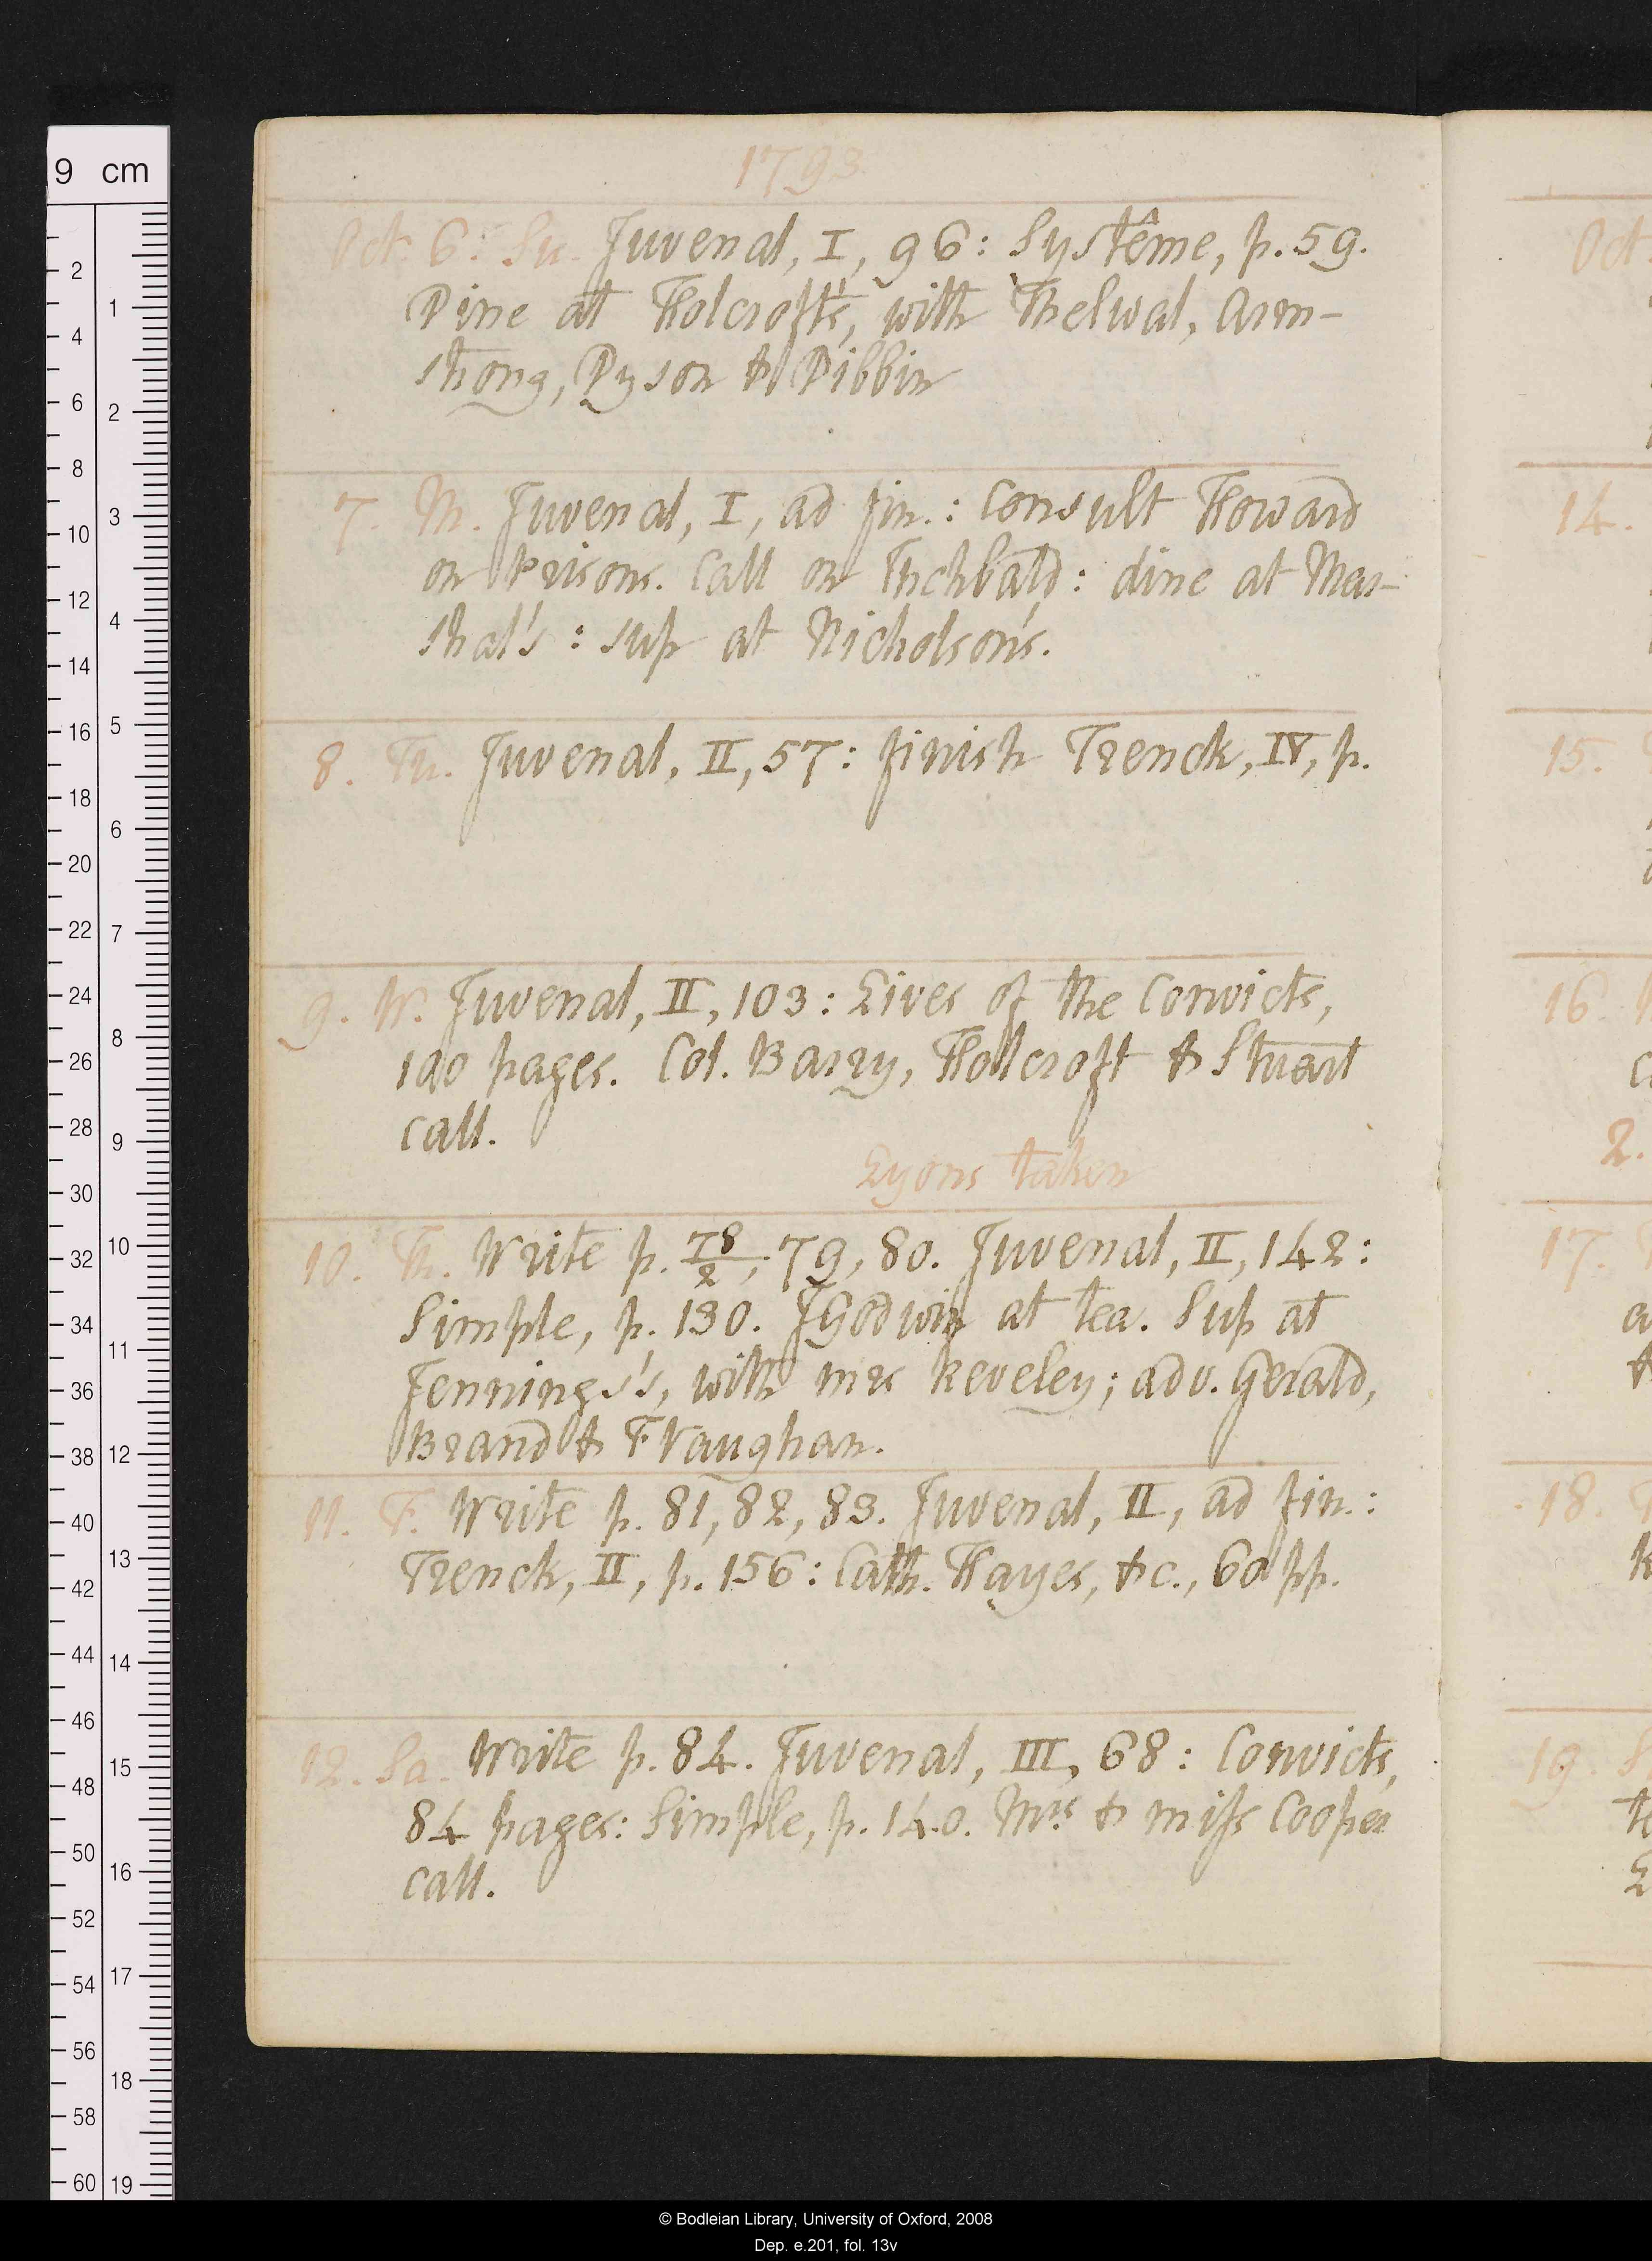 1793
Oct. 6. Su. Juvenal, I, 96: Systême, p. 59.
Dine at Holcroft's, with Thelwal, Arm-
strong, Dyson & Dibbin
7. M. Juvenal, I, ad fin.: Consult Howard
on Prisons. Call on Inchbald: dine at Mar-
shal's: sup at Nicholson's.
8. Tu. Juvenal, II, 57: finish Trenck, IV, p.
9. W. Juvenal, II, 103: Lives of the Convicts,
100 pages. Col. Barry, Holcroft & Stuart
call.
Lyons taken
10. Th. Write p. 78/2, 79, 80. Juvenal, II, 142:
Simple, p. 130. J Godwin at tea. Sup at
Jennings's, with mrs Reveley; adv. Gerald,
Brand & F Vaughan.
11. F. Write p. 81, 82, 83. Juvenal, II, ad fin.:
Trenck, II, p. 156: Cath. Hayes, &c., 60 pp.
12. Sa. Write p. 84. Juvenal, III, 68: Convicts,
84 pages: Simple, p. 140. Mrs & miss Cooper
call.
Oct.
14.
15.
16.
2.
17.
18.
19.
9 cm
2
4
6
8
10
12
14
16
18
20
22
24
26
28
30
32
34
36
38
40
42
44
46
48
50
52
54
56
58
60
1
2
3
4
5
6
7
8
9
10
11
12
13
14
15
16
17
18
19
© Bodleian Library, University of Oxford, 2008
Dep. e.201, fol. 13v